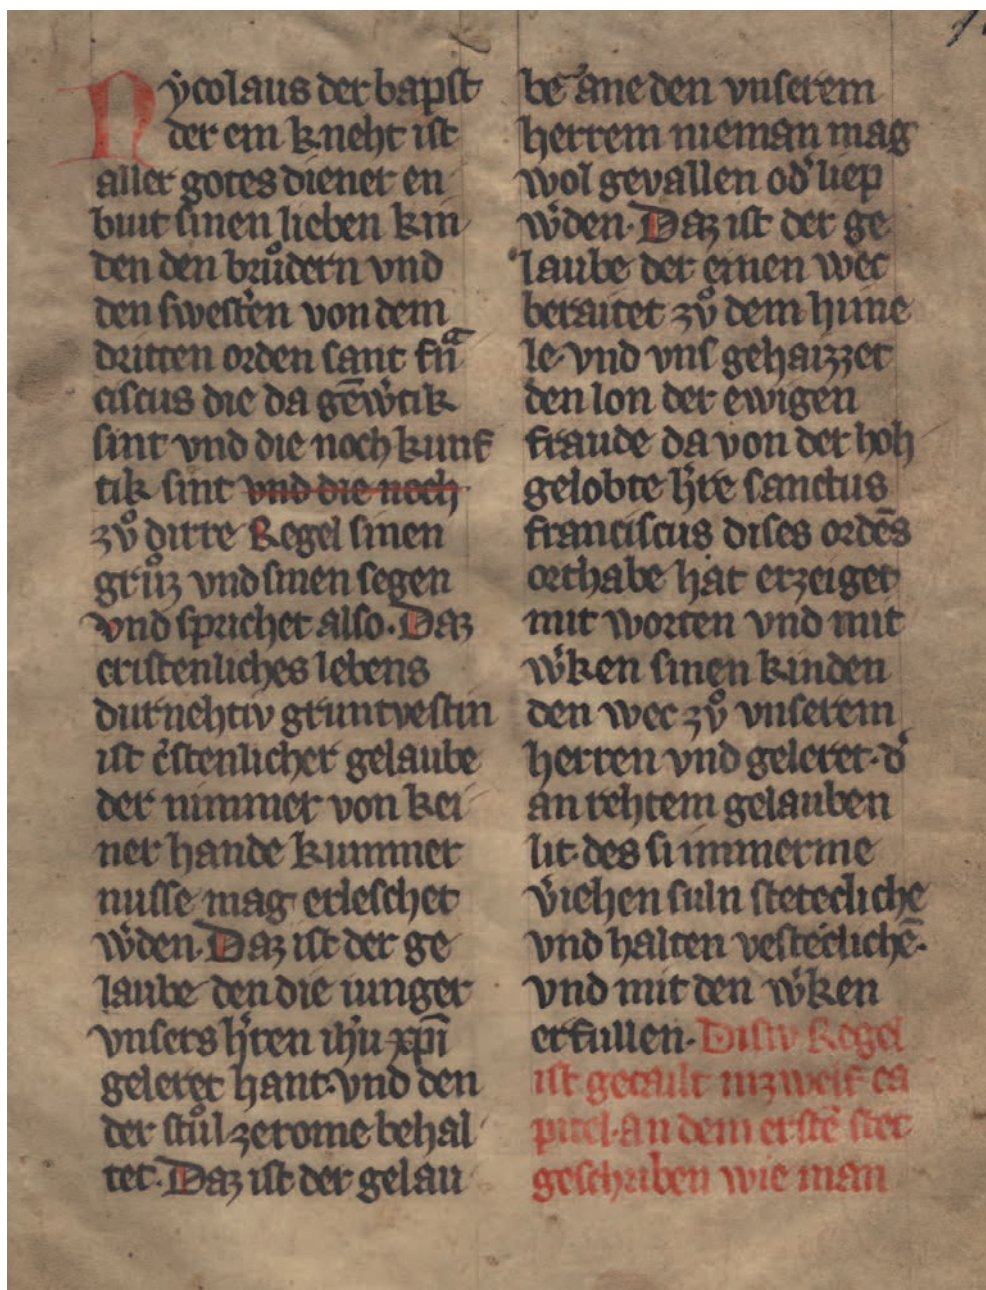 Nẏcolaus der bapst
der ein kneht ist
aller gotes diener en
buit sinen lieben kin
den den bruͦdern vnd
den swest᷑en von dem
dritten orden sant frͣn
ciscus die da gēw᷑tik
sint vnd die noch kunf
tik sint vnd die noch
zvͦ dirre Regel sinen
gruͦz vnd sinen segen
vnd sprichet also· Daz
cristenliches lebens
durnehtiv gruntvestin
ist c᷑stenlicher gelaube
der nimmer von kei
ner hande kummer
nusse mag erleschet
w᷑den· Daz ist der ge
laube den die iunger
vnsers h᷑ren ihu xpi
geleret hant· vnd den
der stuͦl ze rome behal
tet· Daz ist der gelau
be ane den vnserem
herrem nieman mag
wol gevallen od᷑ liep
w᷑den· Daz ist der ge
laube der einen wec
beraitet zvͦ dem hime
le· vnd vns gehaizzet
den lon der ewigen
fraude da von der hoh
gelobte h᷑re sanctus
franciscus dises ordēs
orthabe hat erzeiget
mit worten vnd mit
w᷑ken sinen kinden
den wec zvͦ vnserem
herren vnd geleret· d᷑
an rehtem gelauben
lit· des si immerme
v᷑iehen suln stetecliche
vnd halten vestecliche᷑·
vnd mit den w᷑ken
erfullen· Disiv Regel
ist getailt inzwelf ca
pitel· an dem erstē stet
geschriben wie man